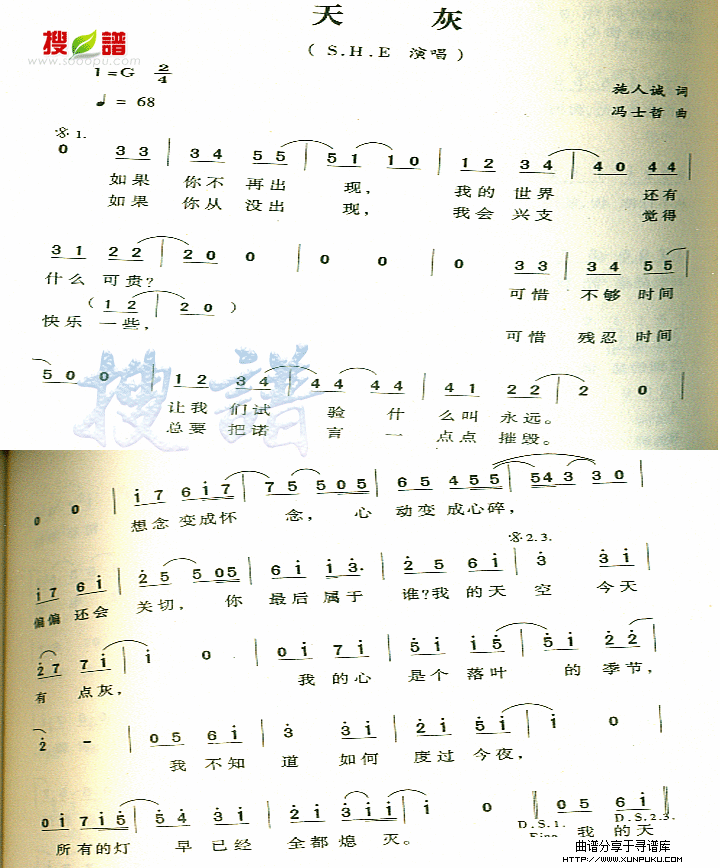 天 灰
搜谱
www.sooopu.com
( S.H.E 演唱 )
1=G 2/4
♩ = 68
施人诚 词
冯士哲 曲
𝄋 1.
0 3 3 | 3 4 5 5 | 5 1 1 0 | 1 2 3 4 | 4 0 4 4 |
如果 你不 再出 现, 我的 世界 还有
如果 你从 没出 现, 我会 兴支 觉得
3 1 2 2 | 2 0 0 | 0 0 | 0 3 3 | 3 4 5 5
什么 可贵? 可惜 不够 时间
( 1 2 | 2 0 )
快乐 一些, 可惜 残忍 时间
5 0 0 | 1 2 3 4 | 4 4 4 4 | 4 1 2 2 | 2 0
让我 们试 验 什 么叫 永远。
总要 把诺 言 一 点点 摧毁。
搜谱
0 0 | i 7 6 i 7 | 7 5 5 0 5 | 6 5 4 5 5 | 5 4 3 3 0
想念 变成怀 念, 心 动变 成心碎,
𝄋 2.3.
i 7 6 i | 2 5 5 0 5 | 6 i i 3· | 2 5 6 i | 3 3 i
偏偏 还会 关切, 你 最后 属于 谁?我 的天 空 今天
2 7 7 i | i 0 | 0 i 7 i | 5 i i 5 | 5 i 2 2
有 点灰, 我 的心 是个 落叶 的 季节,
2 - | 0 5 6 i | 3 3 i | 2 i 5 i | i 0
我 不知 道 如何 度过 今夜,
0 i 7 i 5 | 5 4 3 i | 2 i 3 i i | i 0 | 0 5 6 i
所有的灯 早 已经 全都 熄 灭。 我 的天
D.S.1. D.S.2.3.
Fine
曲谱分享于寻谱库
HTTP://WWW.XUNPUKU.COM